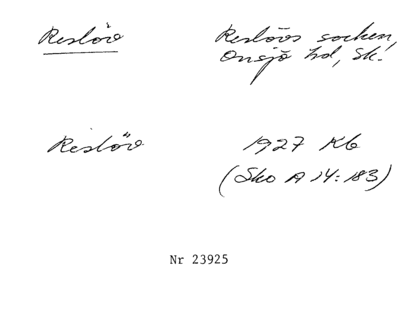 Reslöv Reslövs socken,
Onsjö hd, Sk.
Reslöv 1927 Kb
(Sko A 14:183)
Nr 23925